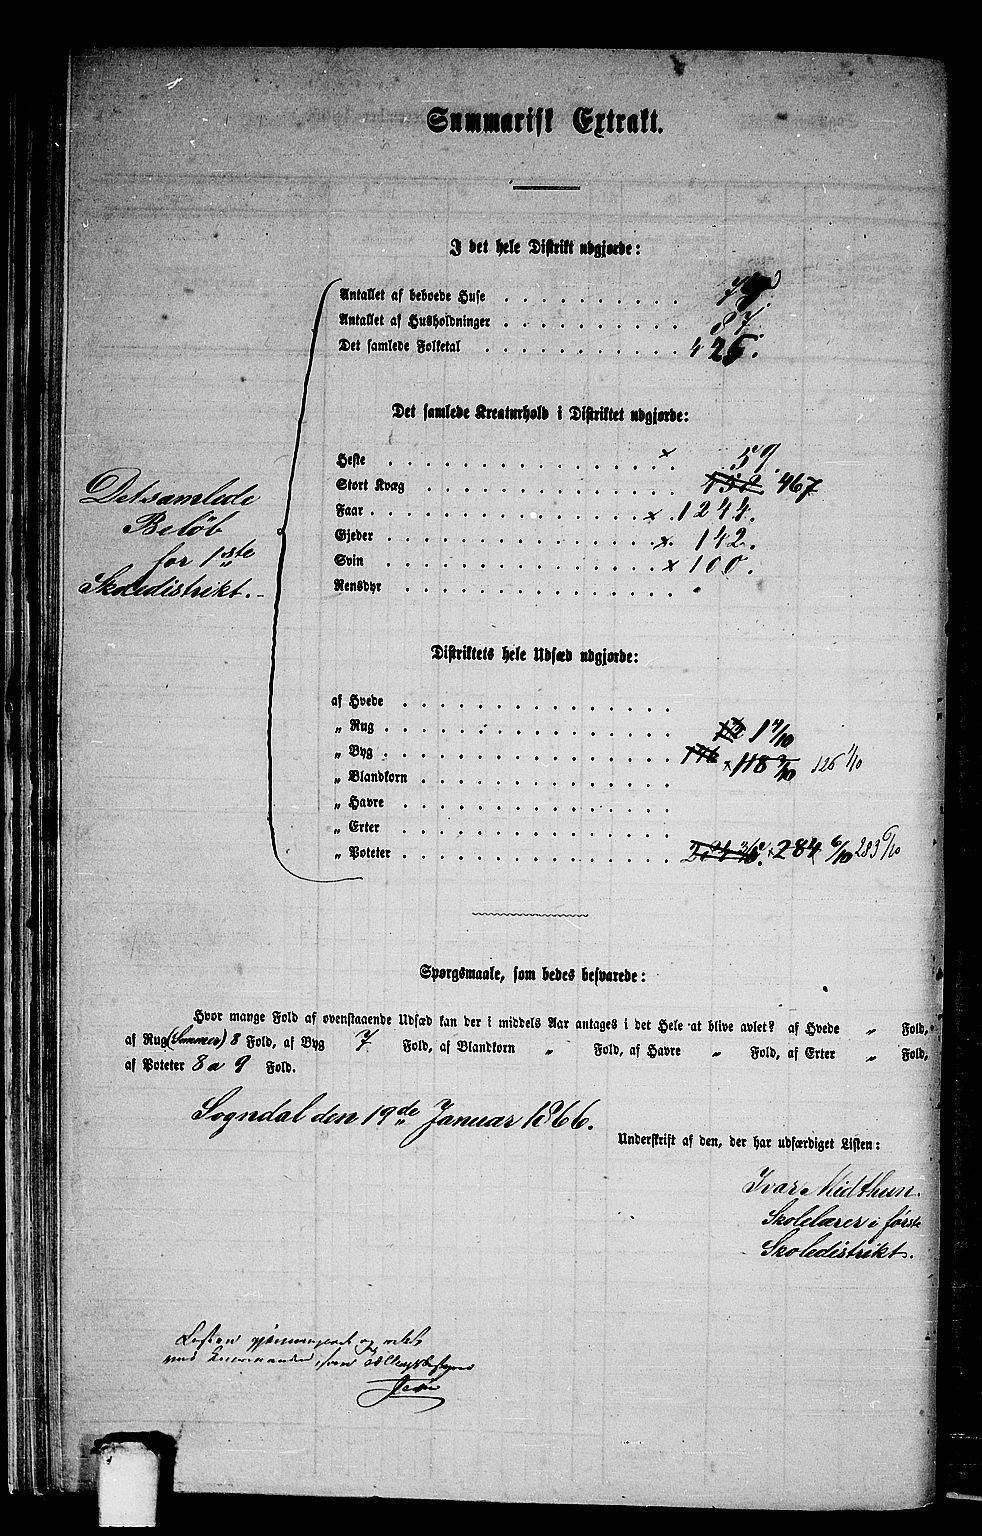 Summarisk Extrakt.
I det hele Distrikt udgjorde:
Antallet af beboede Huse
Antallet af Husholdninger 87.
Det samlede Folketal 425.
Det samlede Kreaturhold i Distriktet udgjorde:
Heste × 59.
Stort Kvæg 467
Faar × 1244.
Gjeder × 142.
Svin × 100.
Rensdyr
Det samlede
Beløb
for 1ste
Skoledistrikt.
Distriktets hele Udsæd udgjorde:
af Hvede
„ Rug 1 4/10
„ Byg × 118 2/10 126 1/10
„ Blandkorn
„ Havre
„ Erter
„ Poteter × 284 6/10 283 6/10
Spørgsmaale, som bedes besvarede:
Hvor mange Fold af ovenstaaende Udsæd kan der i middels Aar antages i det Hele at blive avlet? af Hvede „ Fold,
af Rug (Sommer) 8 Fold, af Byg 7 Fold, af Blandkorn „ Fold, af Havre „ Fold, af Erter „ Fold,
af Poteter 8 a 9 Fold.
Sogndal den 19de Januar 1866.
Underskrift af den, der har udfærdiget Listen:
Ivar Midthun.
Skolelærer i første
Skoledistrikt.
Listen gjennemgaaet og